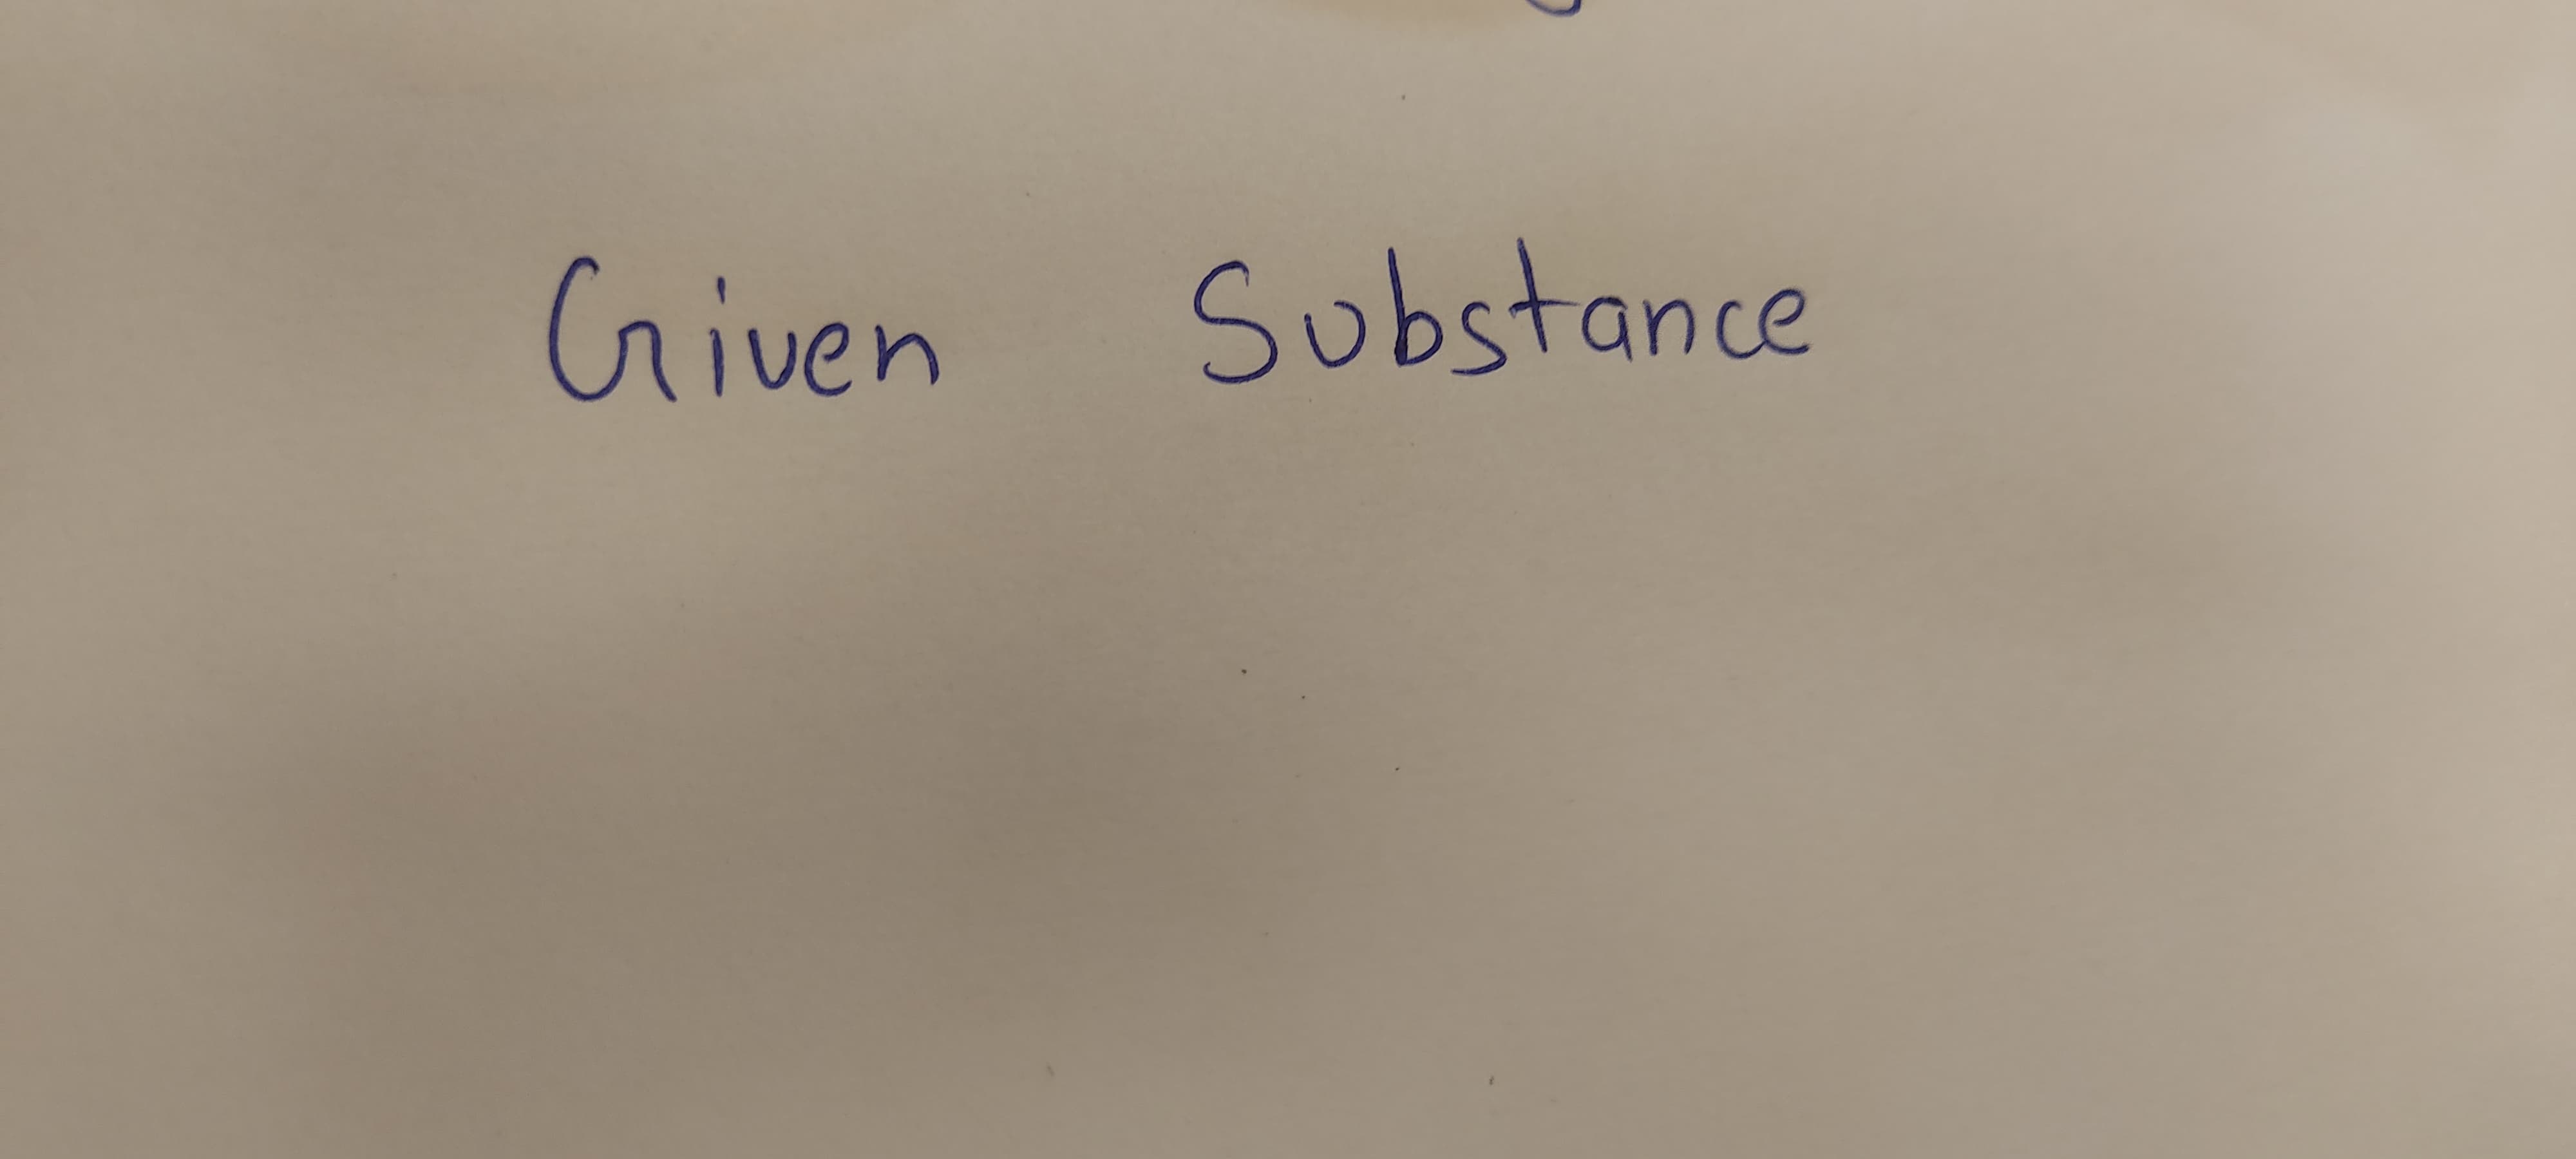 Given Substance